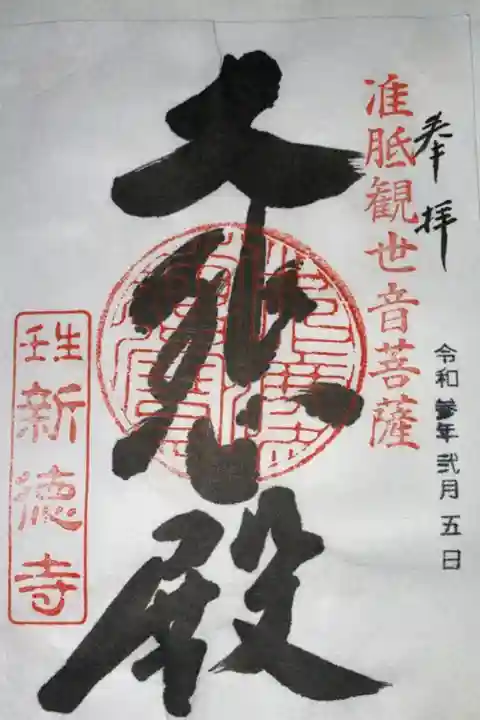 奉拝
准胝観世音菩薩
令和 参年 弐月 五日
大悲殿
壬生
新徳寺